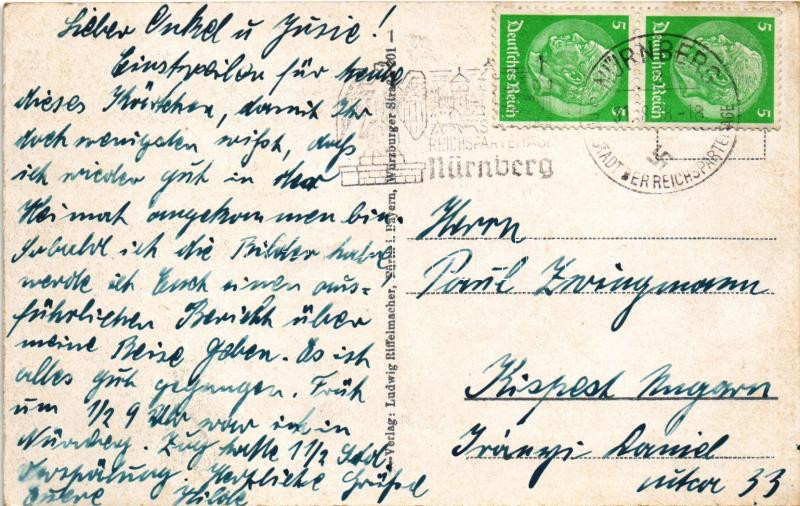 Lieber Onkel u Jusie!
Einstweilen für heute
dieses Kärtchen, damit Ihr
doch wenigsten wißt, daß
ich wieder gut in der
Heimat angekommen bin.
Sobald ich die Bilder habe
werde ich Euch einen aus-
führlichen Bericht über
meine Reise geben. Es ist
alles gut gegangen. Früh
um 1/2 9 Uhr war ich in
Nürnberg. Zug hatte 1 1/2 Std
Verspätung. Herzliche Grüße
Euere Hilde
Verlag: Ludwig Riffelmacher, Fürth i. Bayern, Würzburger Straße
REICHSPARTEITAGE
Nürnberg
5
Deutsches Reich
5
Deutsches Reich
NÜRNBERG
STADT DER REICHSPARTEITAGE
Herrn
Paul Zwingmann
Kispest Ungarn
Irányi Daniel
utca 33